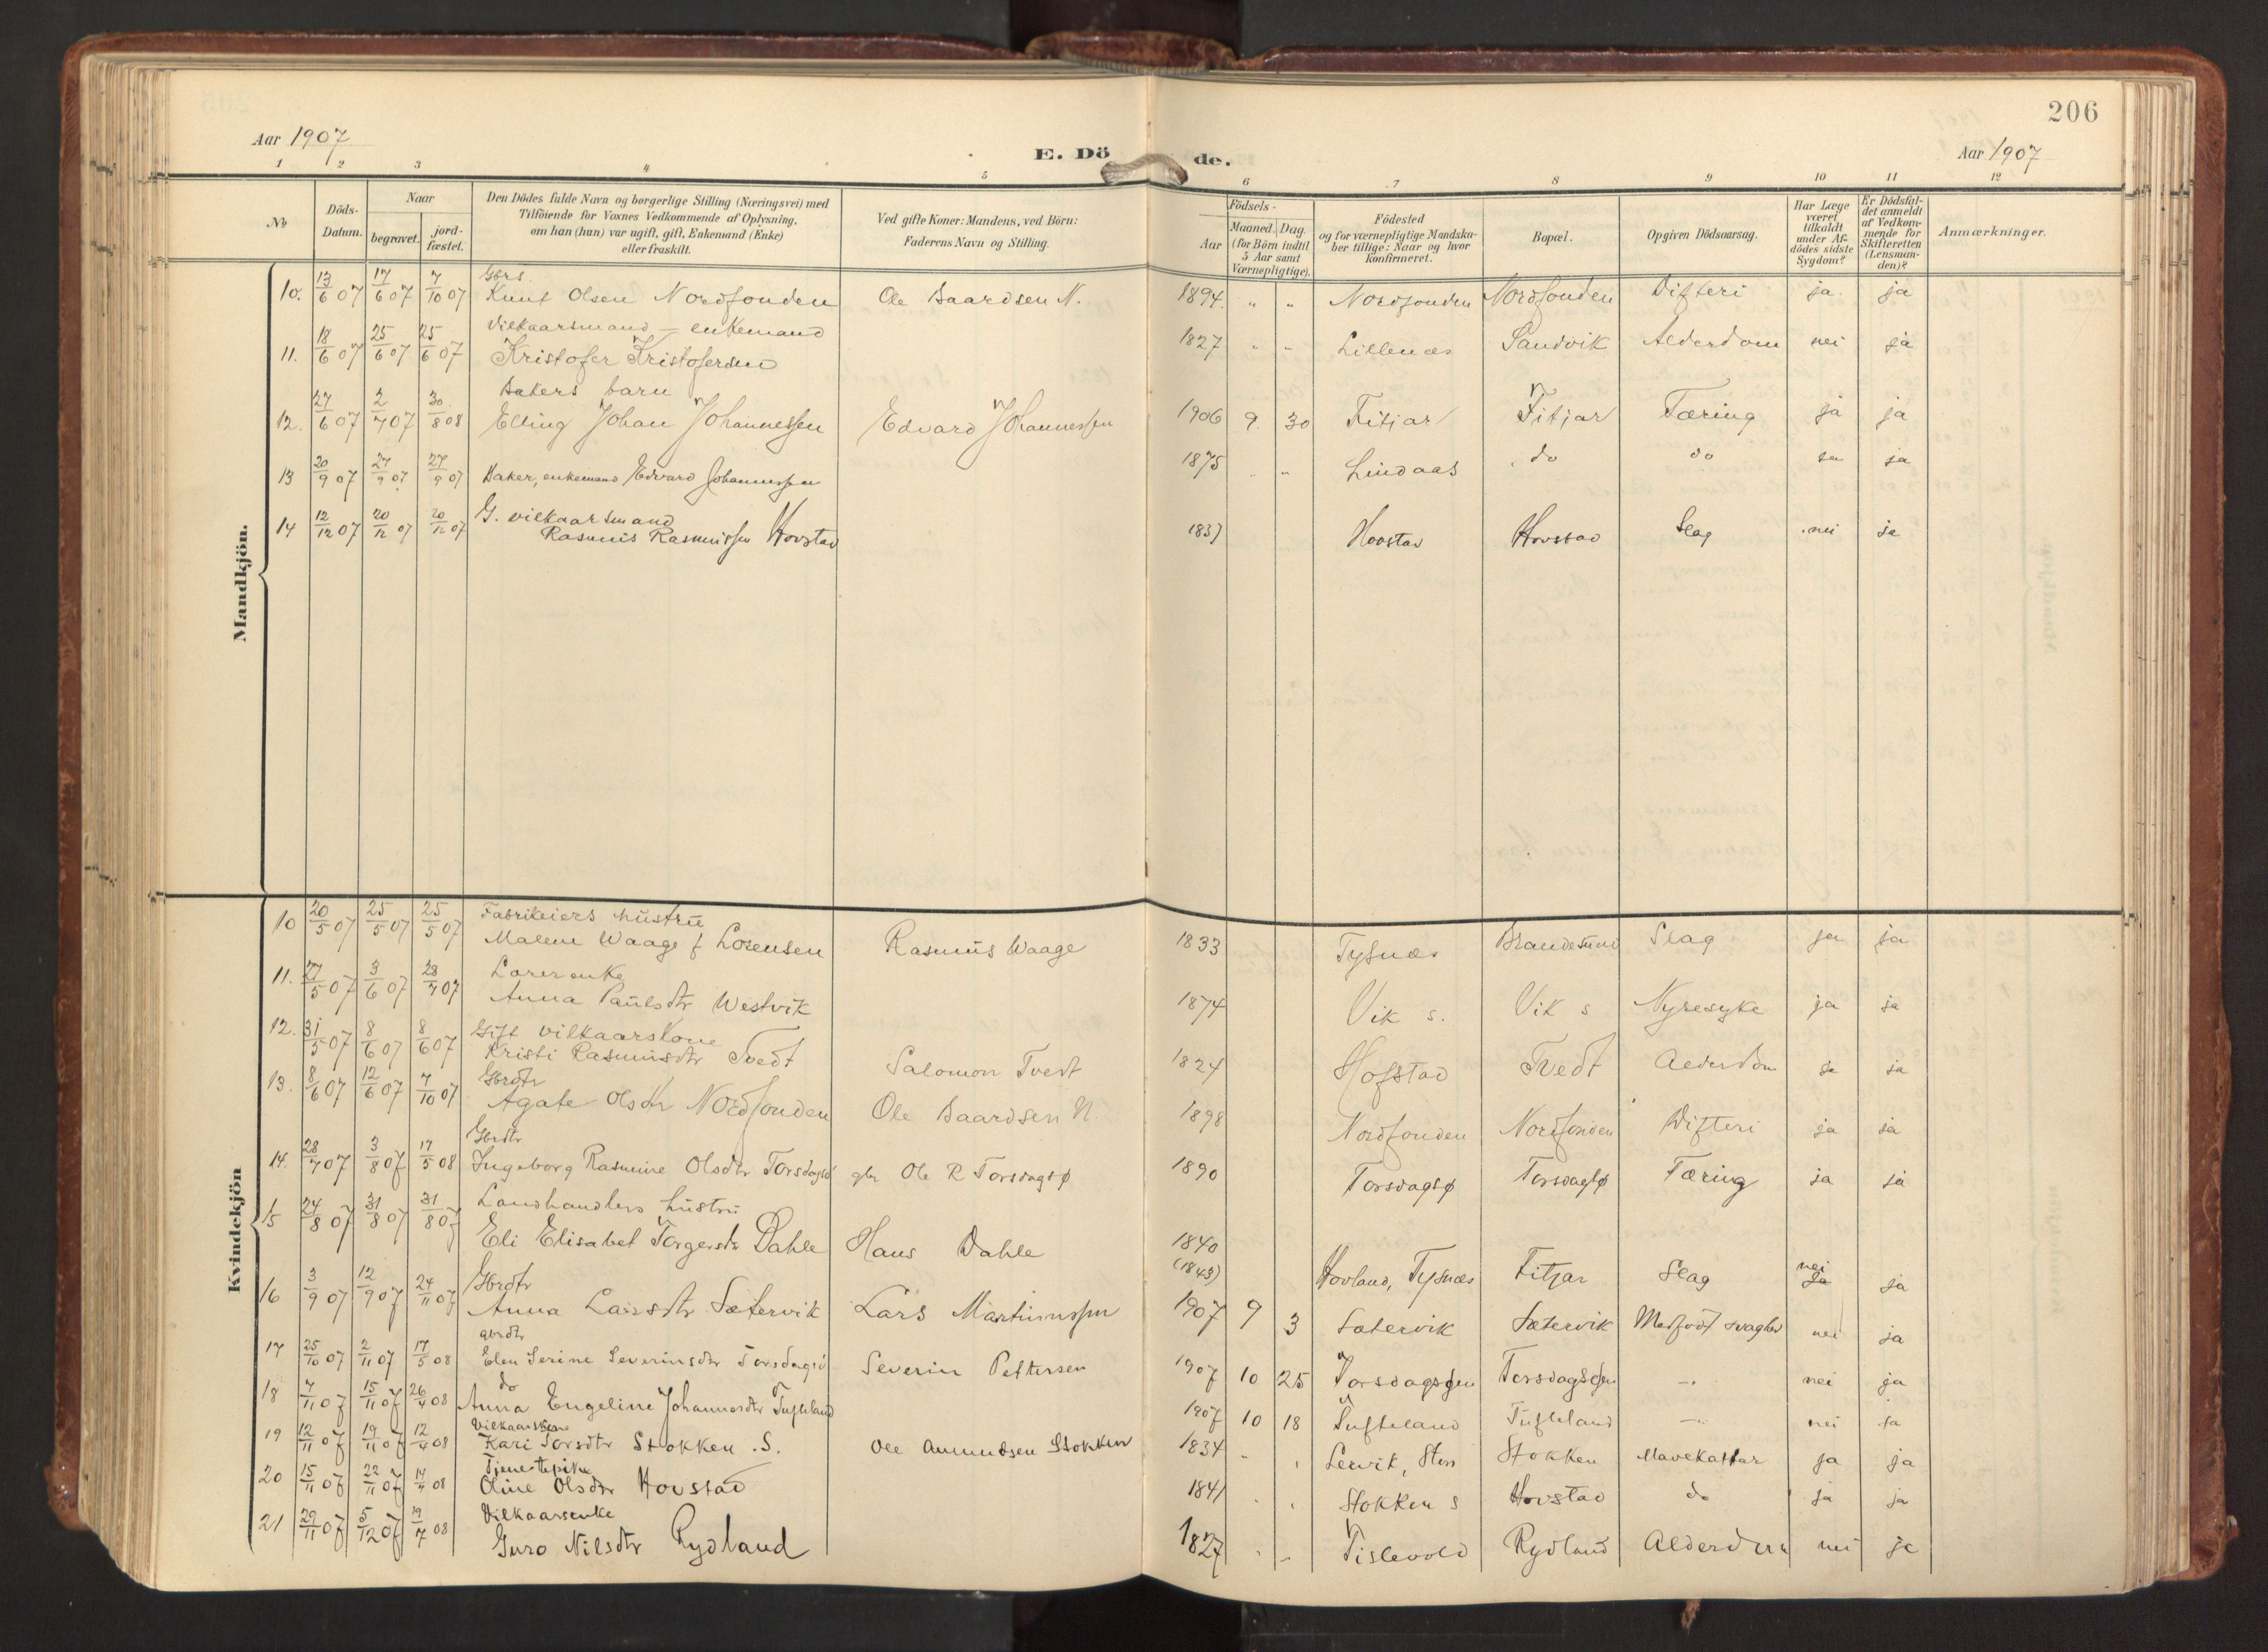 206
Aar 1907
E. Dö de.
Aar 1907
1 2 3 4 5 6 7 8 9 10 11 12
No
Döds-Datum.
Naar
begravet.
jord-fæstet.
Den Dödes fulde Navn og borgerlige Stilling (Næringsvei) med
Tilföiende for Voxnes Vedkommende af Oplysning,
om han (hun) var ugift, gift, Enkemand (Enke)
eller fraskilt.
Ved gifte Koner: Mandens, ved Börn:
Faderens Navn og Stilling.
Födsels-
Aar
Maaned. Dag.
(for Börn indtil
5 Aar samt
Værnepligtige).
Födested
og for værnepligtige Mandska-
ber tillige: Naar og hvor
konfirmeret.
Bopæl.
Opgiven Dödsaarsag.
Har Læge
været
tilkaldt
under Af-
dödes sidste
Sygdom?
Er Dödsfal-
det anmeldt
af Vedkom-
mende for
Skifteretten
(Lensman-
den)?
Anmærkninger.
Mandkjön.
Gbrs.
10. 13/6 07 17/6 07 7/10 07 Knut Olsen Nordfonden Ole Baardsen N. 1894. " " Nordfonden Nordfonden Difteri ja. ja
Vilkaarsmand - enkemand
11. 18/6 07 25/6 07 25/6 07 Kristofer Kristofersen 1827 " " Lillenæs Sandvik Alderdom nei ja
Bakers barn
12. 27/6 07 2/7 07 30/8 08 Elling Johan Johannessen Edvard Johannessen 1906 9. 30 Fitjar Fitjar Tæring ja ja
13 20/9 07 27/9 07 27/9 07 Baker, enkemand Edvard Johannessen 1875 " " Lindaas do do ja ja
G. vilkaarsmand
14 12/12 07 20/12 07 20/12 07 Rasmus Rasmussen Hovstad 1837 Hovstad Hovstad Slag nei ja
Kvindekjön
Fabrikeiers hustru
10 20/5 07 25/5 07 25/5 07 Malene Waage f Lorensen Rasmus Waage 1833 Tysnæs Brandesund Slag ja ja
Lærerenke
11. 27/5 07 3/6 07 28/7 07 Anna Paulsdtr Westvik 1874 Vik s. Vik s Nyresyke ja ja
Gift vilkaarskone
12. 31/5 07 8/6 07 8/6 07 Kristi Rasmusdtr Tvedt Salomon Tvedt 1824 Hofstad Tvedt Alderdom ja ja
Gbrdtr
13. 8/6 07 12/6 07 7/10 07 Agate Olsdtr Nordfonden Ole Baardsen N. 1898 Nordfonden Nordfonden Difteri ja ja
Gbrdtr
14. 28/7 07 3/8 07 17/5 08 Ingeborg Rasmine Olsdtr Torsdagsø gbr Ole R Torsdagsø 1890 Torsdagsø Torsdagsø Tæring ja ja
Landhandlers hustru
15 24/8 07 31/8 07 31/8 07 Eli Elisabet Torgersdtr Dahle Hans Dahle 1840 (1843) Hovland, Tysnæs Fitjar Slag nei ja ja
Gbrdtr
16 3/9 07 12/9 07 24/11 07 Anna Larsdtr Sætervik Lars Martinussen 1907 9 3 Sætervik Sætervik Medfødt svaghed nei ja
gbrdtr
17 25/10 07 2/11 07 17/5 08 Elen Serine Severinsdtr Torsdagsø Severin Pettersen 1907 10 25 Torsdagsøen Torsdagsøen -" nei ja
do
18 7/11 07 15/11 07 26/4 08 Anna Engeline Johannesdtr Tufteland 1907 10 18 Tufteland Tufteland -" nei ja
Vilkaarskone
19 12/11 07 19/11 07 12/4 08 Kari Torsdtr Stokken .S. Ole Amundsen Stokken 1834 " " Lervik, Stor Stokken Mavekattar ja ja
Tjenestepike
20 15/11 07 22/11 07 14/4 08 Oline Olsdtr Hovstad 1841 " " Stokken s Hovstad do ja ja
Vilkaarsenke
21 29/11 07 5/12 07 19/7 08 Guro Nilsdtr Rydland 1827 " " Tislevold Rydland Alderdom nei ja